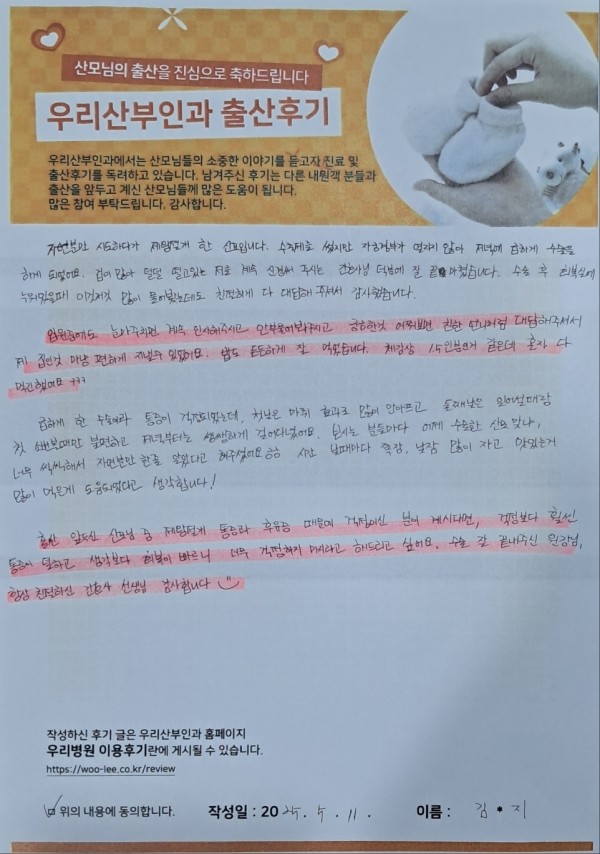 산모님의 출산을 진심으로 축하드립니다
우리산부인과 출산후기
우리산부인과에서는 산모님들의 소중한 이야기를 듣고자 진료 및
출산후기를 독려하고 있습니다. 남겨주신 후기는 다른 내원객 분들과
출산을 앞두고 계신 산모님들께 많은 도움이 됩니다.
많은 참여 부탁드립니다. 감사합니다.
자연분만 시도하다가 제왕절개 한 산모입니다. 촉진제로 썼지만 자궁경부가 열리지 않아 저녁에 급하게 수술을
하게 되었어요. 겁이 많아 덜덜 떨고있는 저를 계속 신경써 주시는 간호사님 덕분에 잘 마쳤습니다. 수술 후 회복실에
누워있을때 이것저것 많이 물어봤는데도 친절하게 다 대답해 주셔서 감사했습니다.
입원중에도 눈마주치면 계속 인사해주시고 안부물어봐주시고 궁금한것 여쭤보면 친한 언니처럼 대답해주셔서
제 집인것 마냥 편하게 지낼수 있었어요. 밥도 든든하게 잘 먹었습니다. 체감상 1.5인분인거 같은데 혼자 다
먹긴했어요 ㅋㅋㅋ
급하게 한 수술이라 통증이 걱정되었는데, 첫날은 마취 효과로 많이 안아프고 둘째날은 일어날때랑
첫 소변볼때만 불편하고 저녁부터는 쌩쌩하게 걸어다녔어요. 보시는 분들마다 어제 수술한 산모 맞냐,
너무 씩씩해서 자연분만 한줄 알았다고 해주셨어요 ㅎㅎ 시간 날때마다 걷고, 낮잠 많이 자고 맛있는거
많이 먹은게 도움되었다고 생각합니다!
출산 앞두신 산모님 중 제왕절개 통증과 후유증 때문에 걱정이신 분이 계시다면, 걱정보다 훨씬
통증이 덜하고 생각보다 회복이 빠르니 너무 걱정하지 마시라고 해드리고 싶어요. 수술 잘 끝내주신 원장님,
항상 친절하신 간호사 선생님 감사합니다
작성하신 후기 글은 우리산부인과 홈페이지
우리병원 이용후기란에 게시될 수 있습니다.
https://woo-lee.co.kr/review
위의 내용에 동의합니다. 작성일 : 2025. 5. 11. 이름 : 김 * 지